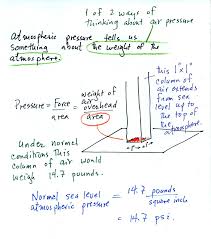 1 of 2 ways of
thinking about air pressure
atmospheric pressure tells us
something about the weight of the
atmosphere.
Pressure = Force
area
weight of
air
overhead
area
this 1"x1"
column of
air extends
from sea
level up to
the top of
the
atmosphere.
1"
1"
Under normal
conditions this
column of air would
weigh 14.7 pounds.
Normal sea level
atmospheric pressure
= 14.7 pounds
square inch
= 14.7 psi.